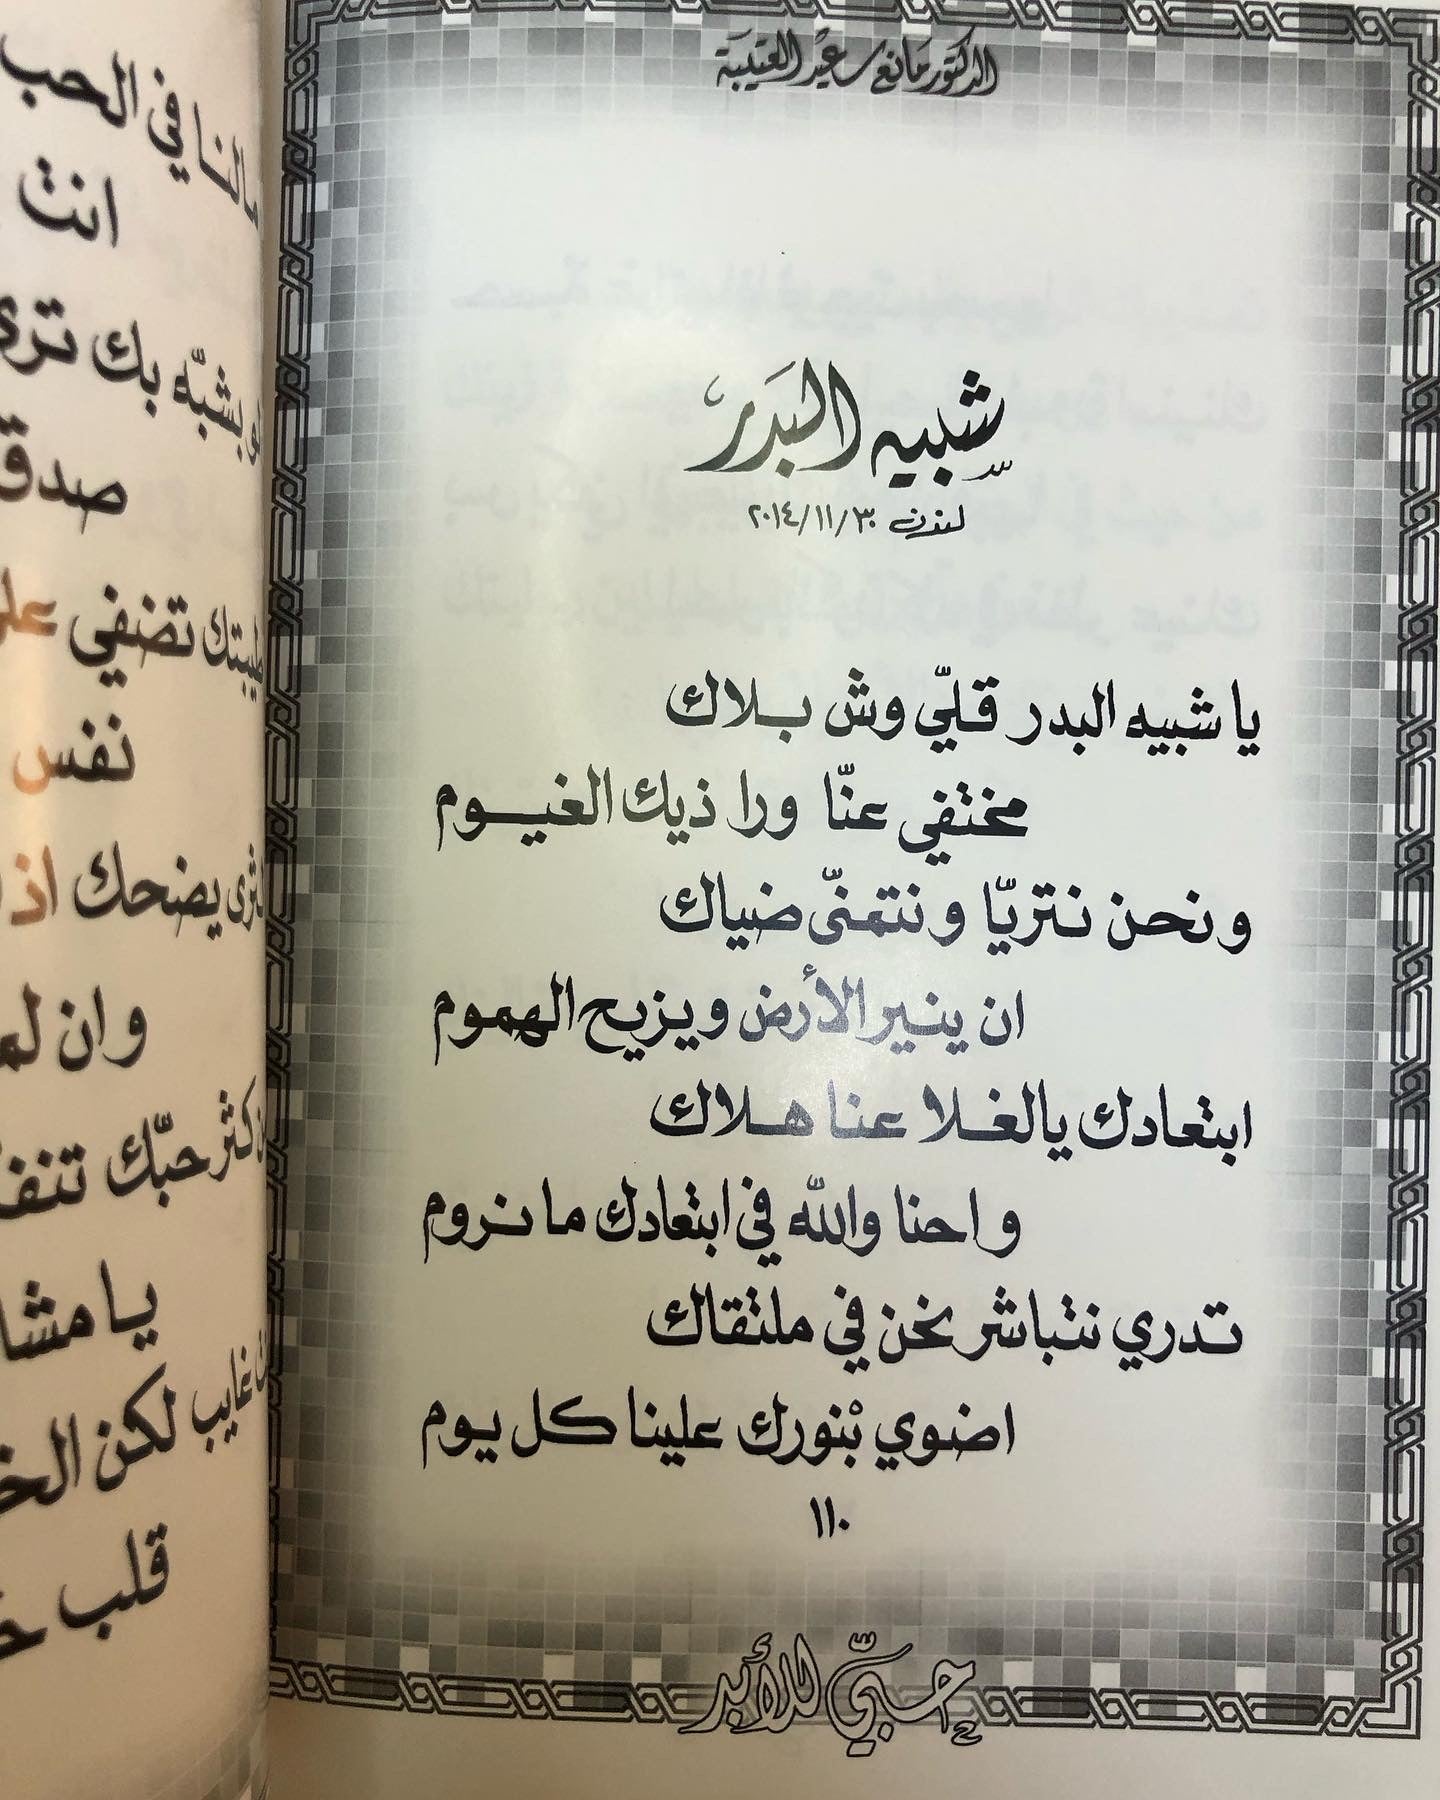 الدكتور مانع سعيد العتيبة
شبيه البدر
لندن ٢٠١٤/١١/٣٠
يا شبيه البدر قلّي وش بلاك
مختفي عنّا ورا ذيك الغيوم
ونحن نتريّا ونتمنّى ضياك
ان ينير الأرض ويزيح الهموم
ابتعادك يالغلا عنا هلاك
واحنا والله في ابتعادك ما نروم
تدري نتباشر نحن في ملتقاك
اضوي بْنورك علينا كل يوم
١١٠
حبّي للأبد
مالنا في الحب
انت
بشبّه بك ترى
صدق
طيبتك تضفي
نفس
يضحك اذا
وان لم
كثر حبّك
يا
غايب لكن
قلب